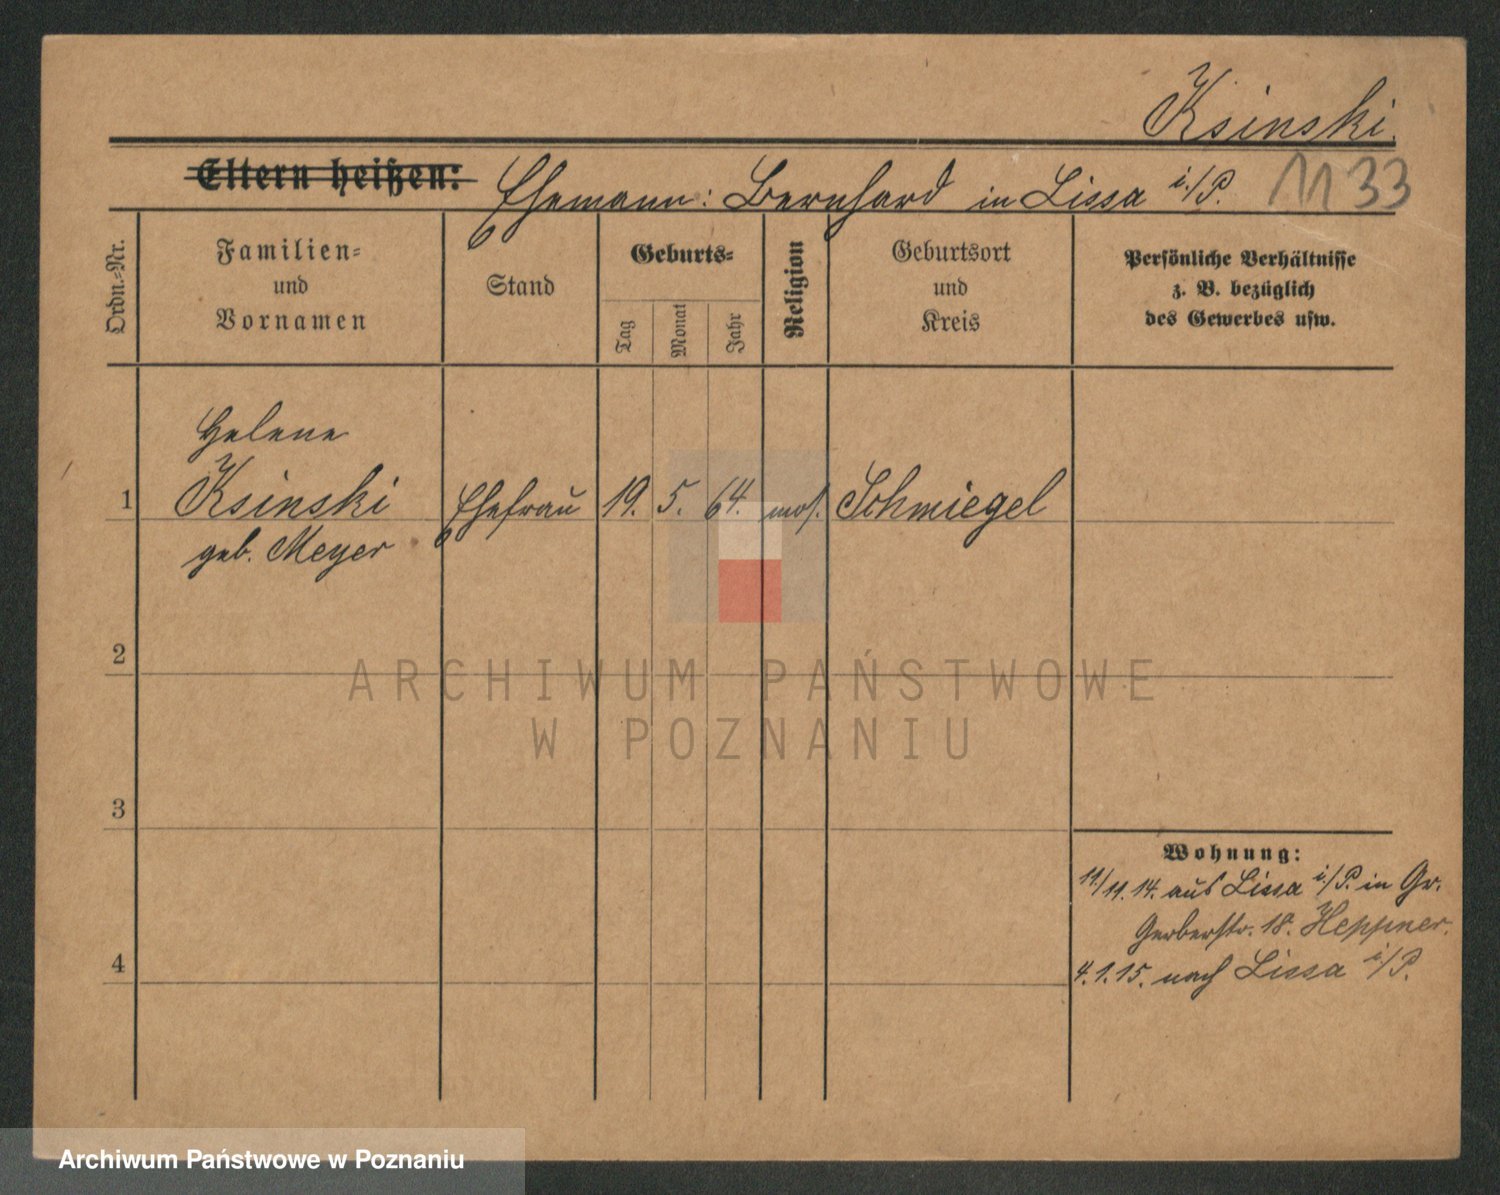 Ksinski.
Eltern heißen: Ehemann: Bernhard in Lissa i./P. 1133
Ordn.-Nr.
Familien-
und
Vornamen
Stand
Geburts-
Tag
Monat
Jahr
Religion
Geburtsort
und
Kreis
Persönliche Verhältnisse
z. B. bezüglich
des Gewerbes usw.
Helene
1 Ksinski Ehefrau 19. 5. 64. mos. Schmiegel
geb. Meyer
2
ARCHIWUM PAŃSTWOWE
W POZNANIU
3
Wohnung:
11/11. 14. aus Lissa i./P. in Gr.
Gerberstr. 18. Heppner.
4
4. 1. 15. nach Lissa i./P.
Archiwum Państwowe w Poznaniu